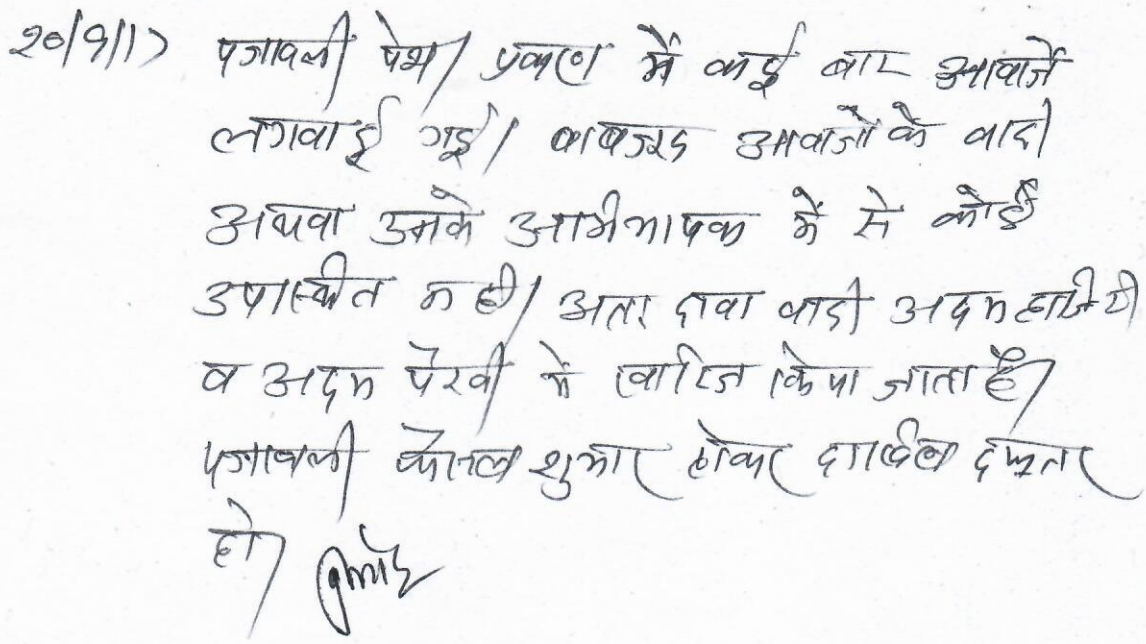 20/9/17 पत्रावली पेश। प्रकरण में कई बार आवाजें
लगवाई गई। बावजूद आवाजों के वादी
अथवा उसके अभिभाषक में से कोई
उपस्थित नहीं। अतः दावा वादी अदम हाजिरी
व अदम पैरवी में खारिज किया जाता है।
पत्रावली फैसल शुमार होकर दाखिल दफ्तर
हो।